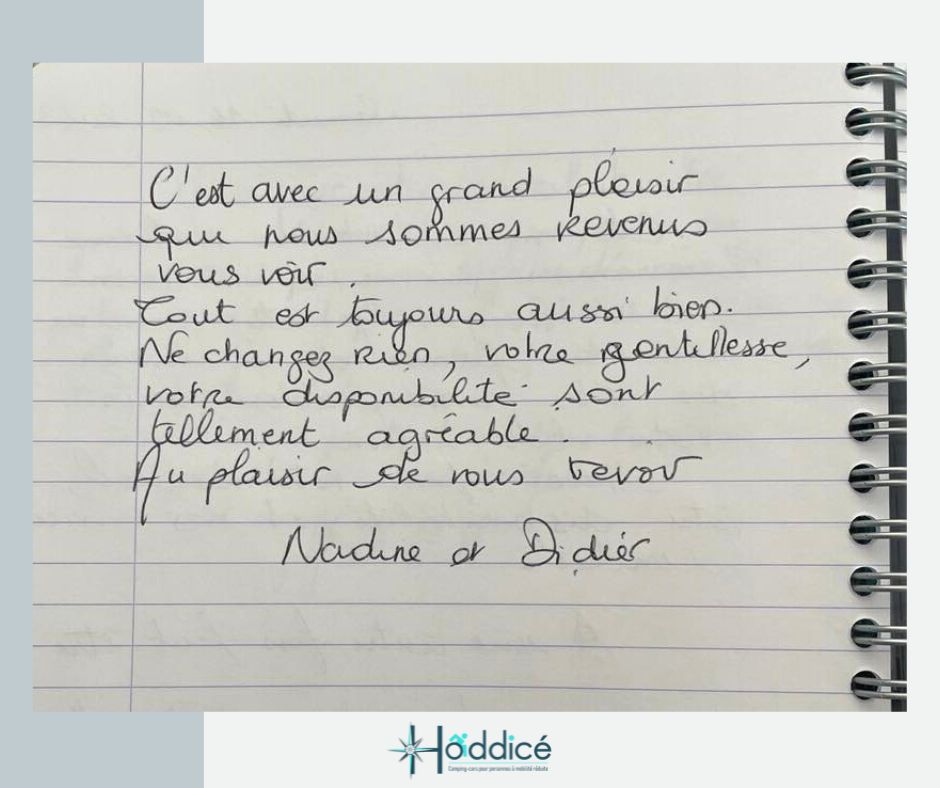 C'est avec un grand plaisir
que nous sommes revenus
vous voir.
Tout est toujours aussi bien.
Ne changez rien, votre gentillesse,
votre disponibilité sont
tellement agréable.
Au plaisir de vous revoir
Nadine et Didier
Hoddicé
Camping-cars pour personnes à mobilité réduite